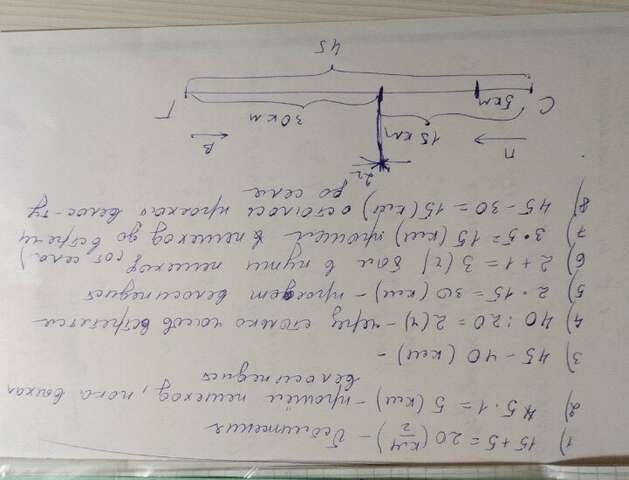 1) 15+5=20 (км/ч) - Vсближения
2) 5·1=5 (км) - прошёл пешеход, пока выехал
велосипедист
3) 45-40 (км) -
4) 40:20=2 (ч) - через столько часов встретятся
5) 2·15=30 (км) - проедет велосипедист
6) 2+1=3 (ч) был в пути пешеход (от села)
7) 3·5=15 (км) прошёл пешеход до встречи
8) 45-30=15 (км) осталось проехать велос-ту
до села
П В
2ч
15 км 30 км
С 5км Г
45